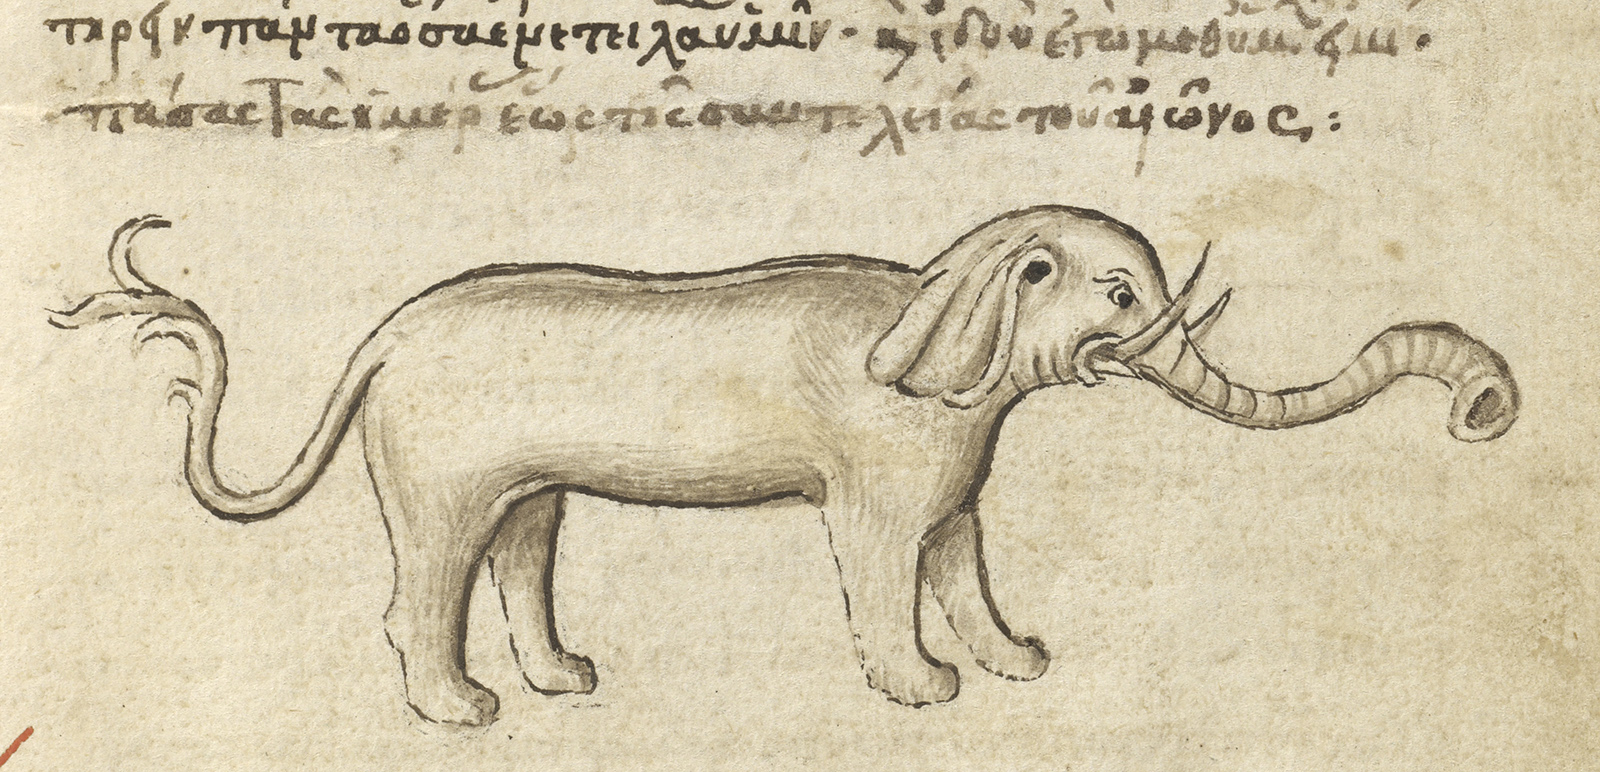 τηρεῖν πάντα ὅσα ἐνετειλάμην ὑμῖν· καὶ ἰδοὺ ἐγὼ μεθ' ὑμῶν εἰμι·
πάσας τὰς ἡμέρ ἕως τῆς συντελείας τοῦ αἰῶνος: